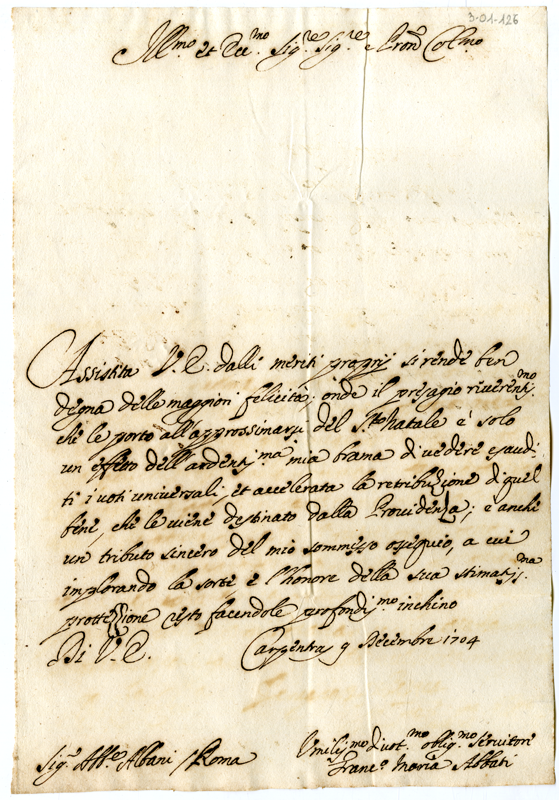 3-01-126
Ill.mo et Ecc.mo Sig.re Sig.re e Pron Col.mo
Assistita V. E. dalli meriti proprij si rende ben
degna delle maggiori felicità; onde il presagio riverentis.mo
che le porto all'approssimarsi del S.to Natale è solo
un effetto dell'ardentis.ma mia brama di vedere esaudi:
ti i voti universali, et accelerata la retribuzione di quel
bene, che le viene destinato dalla Providenza; e anche
un tributo sincero del mio sommesso ossequio, a cui
implorando la sorte e l'honore della sua stimatis.ma
prottezzione resto facendole profondis.mo inchino
Di V. E. Carpentras 9 Decembre 1704
Sig.r Abb.e Albani / Roma
Umilis.mo divot.mo oblig.mo Servitore
Franc.o Maria Abbati